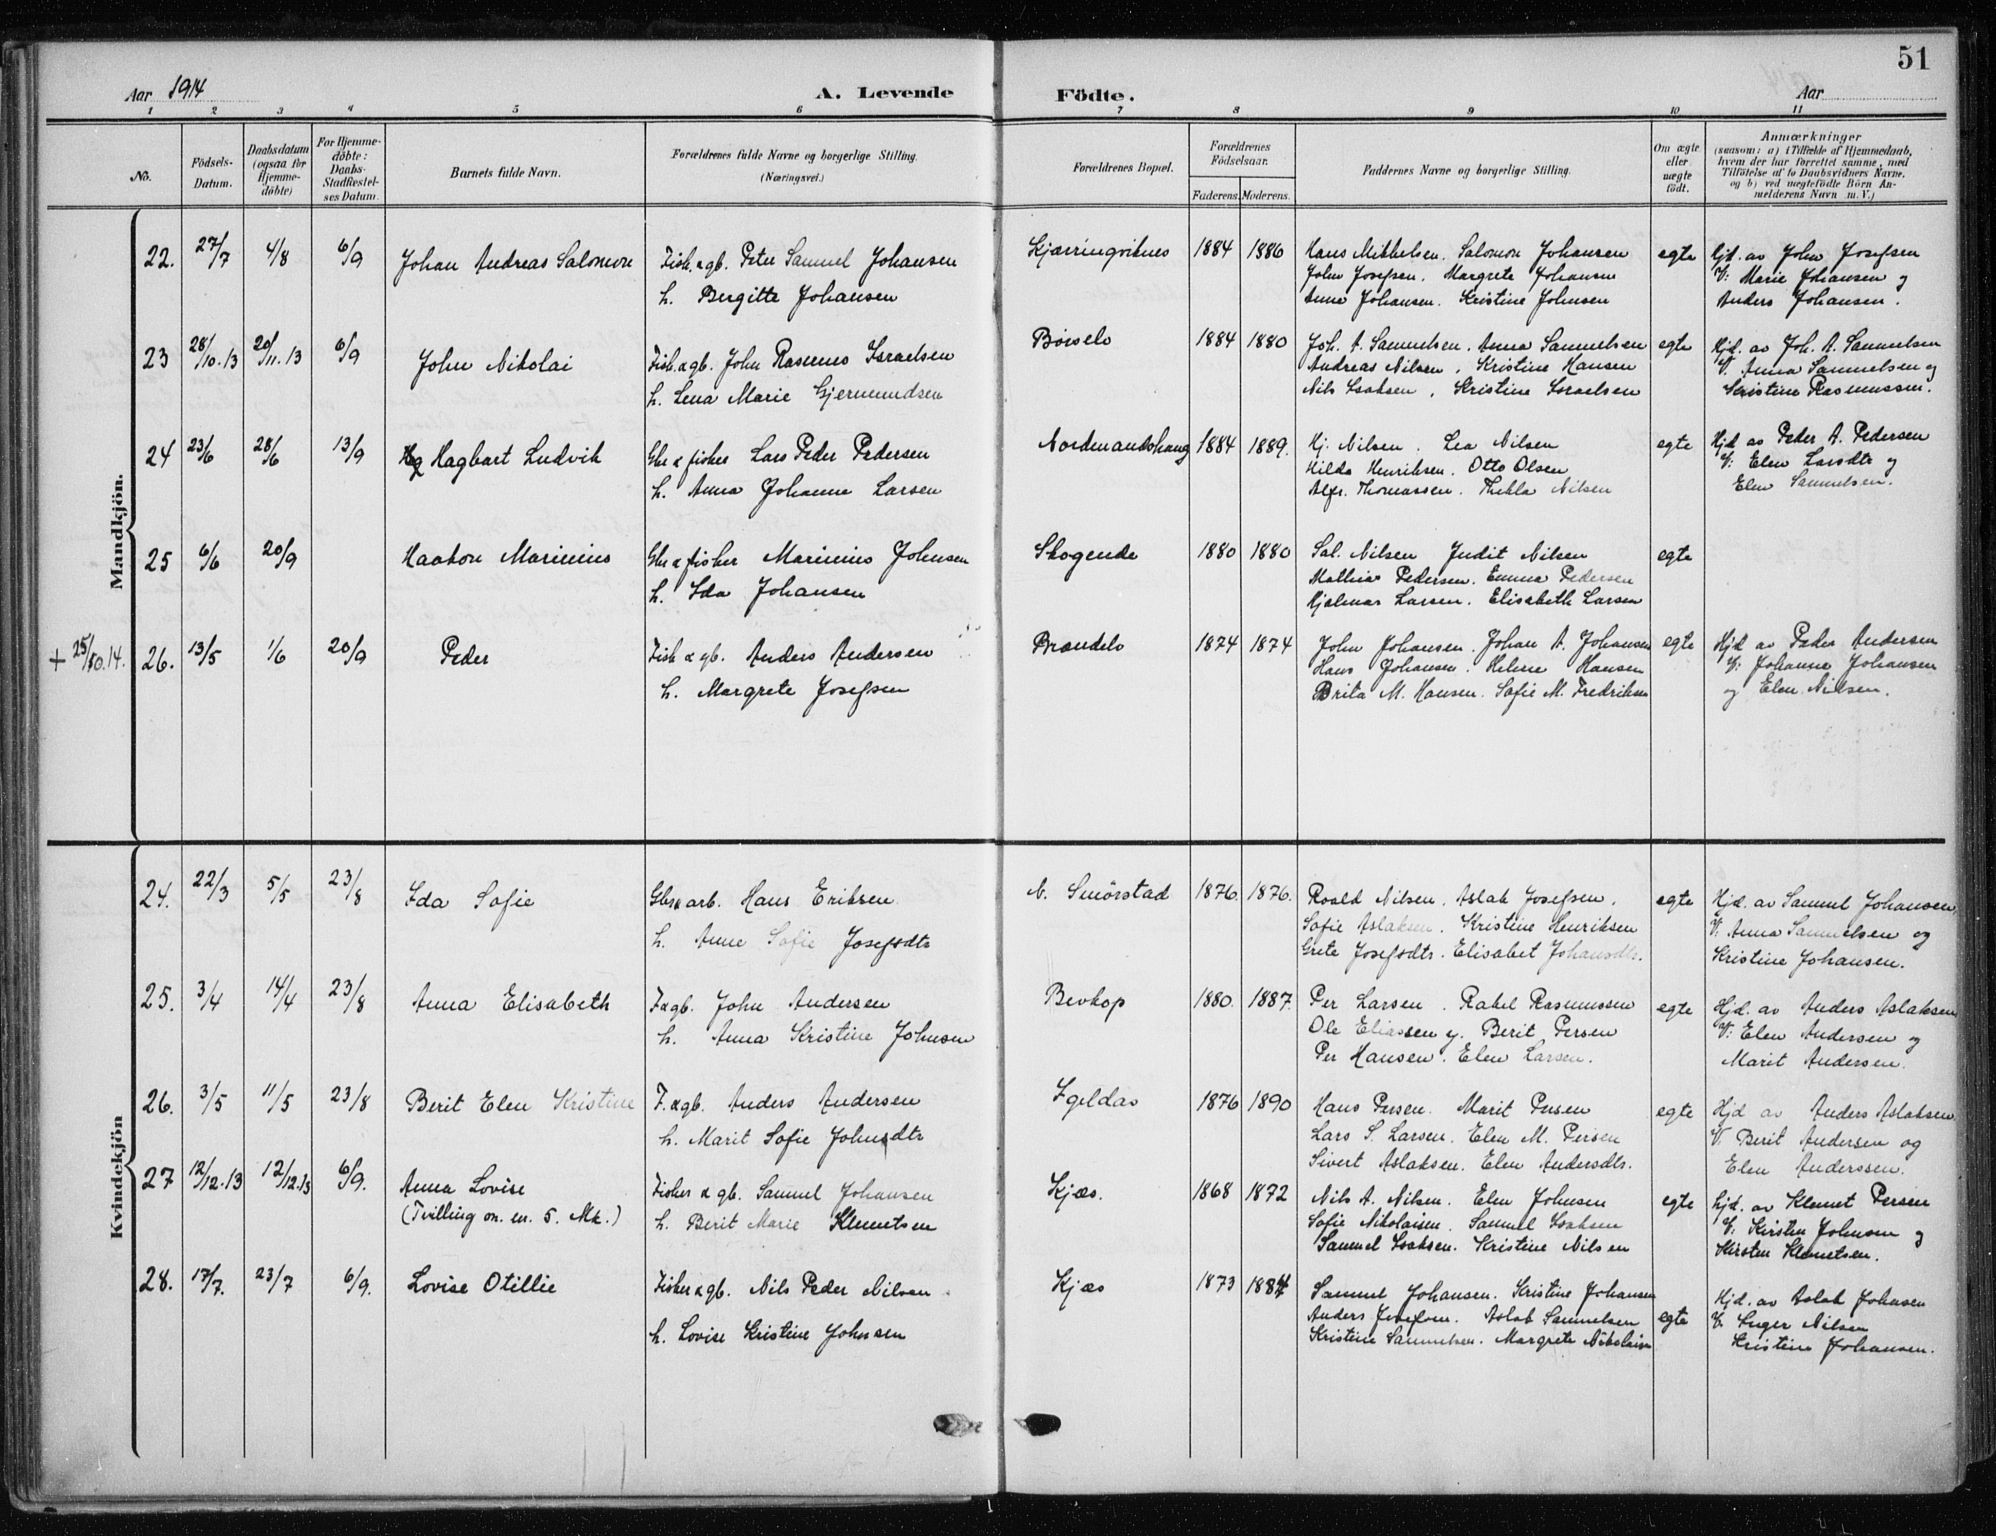 51
Aar 1914 A. Levende Födte. Aar
1 2 3 4 5 6 7 8 9 10 11
No. Födsels-Datum. Daabsdatum (ogsaa for Hjemme-döbte) For Hjemme-döbte: Daabs-Stadfæstel-ses Datum. Barnets fulde Navn. Forældrenes fulde Navne og borgerlige Stilling. (Næringsvei.) Forældrenes Bopæl. Forældrenes Födselsaar. Faderens. Moderens. Faddernes Navne og borgerlige Stilling. Om ægte eller uægte födt. Anmærkninger (saasom: a) i Tilfælde af Hjemmedaab, hvem der har forrettet samme, med Tilföielse af to Daabsvidners Navne, og b) ved uægtefödte Börn An-melderens Navn m. V.)
Mandkjön.
22. 27/7 4/8 6/9 Johan Andreas Salomon Fisk. & gb. Peter Samuel Johansen Kjærringviknes 1884 1886 Hans Mikkelsen. Salomon Johansen egte Hjd. av John Josefsen
John Josefsen. Margrete Johansen V: Marie Johansen og
h. Bergitte Johansen Anna Johansen. Kristine Johnsen Anders Johansen.
23 28/10.13 20/11.13 6/9 John Nikolai Fisk. & gb. John Rasmus Israelsen Börselv 1884 1880 Joh. A. Samuelsen. Anna Samuelsen egte Hjd. av Joh. A. Samuelsen
Andreas Nilsen. Kristine Hansen V. Anna Samuelsen og
h. Lena Marie Gjermundsen Nils Isaksen. Kristine Israelsen Kristine Rasmussen.
24 23/6 28/6 13/9 Hagbart Ludvik Gbr & fisker Lars Peder Pedersen Nordmandshaug 1884 1889. Hj. Nilsen. Lea Nilsen egte Hjd av Peder A. Pedersen
Hilda Henriksen. Otto Olsen V: Elen Larsdtr og
h. Anna Johanna Larsen Alfr. Thomassen. Thekla Nilsen Elen Samuelsen.
25 6/6 20/9 Haakon Marinius Gbr & fisker Marinius Johnsen Skogende 1880 1880 Sal. Nilsen Judit Nilsen egte
Mathis Pedersen. Emma Pedersen
h. Ida Johansen Hjalmar Larsen. Elisabeth Larsen
+ 25/10.14. 26. 13/5 1/6 20/9 Peder Fisk & gb. Anders Andersen Brændelv 1874 1874 John Johansen. Johan A. Johansen egte Hjd av Peder Andersen
Hans Johansen. Helene Hansen V: Johanna Johansen
h. Margrete Josefsen Brita M. Hansen. Sofie M. Fredriksen og Elen Nilsen.
Kvindekjön
24. 22/3 5/5 23/8 Ida Sofie Gbr & arb. Hans Eriksen N. Smörstad 1876. 1876. Roald Nilsen. Aslak Josefsen. egte Hjd. av Samuel Johansen
Sofie Aslaksen. Kristine Henriksen V. Anna Samuelsen og
h. Anne Sofie Josefsdtr Grete Josefsdtr. Elisabet Johansdtr. Kristine Johansen.
25. 3/4 14/4 23/8 Anna Elisabeth F & gb. John Andersen Bevkop 1880. 1887. Per Larsen. Rakel Rasmussen egte Hjd. av Anders Aslaksen
Ole Eliassen y. Berit Persen V: Elen Andersen og
h. Anna Kristine Johnsen Per Hansen. Elen Larsen. Marit Andersen.
26. 3/5 11/5 23/8 Berit Elen Kristine F. & gb. Anders Andersen Igeldas 1876 1890 Hans Persen. Marit Persen egte Hjd av Anders Aslaksen
Lars S. Larsen. Elen M. Persen V. Berit Andersen og
h. Marit Sofie Johnsdtr Sivert Aslaksen. Elen Andersdtr. Elen Anderssen.
27 12/12.13 12/12.13 6/9. Anna Lovise Fisker & gb. Samuel Johansen Kjæs. 1868 1872 Nils A. Nilsen. Elen Johnsen egte hjd. av Klemet Persen
(Tvilling m. nr. 5. Mk.) Sofie Nikolaisen. Samuel Isaksen V: Kirsten Johnsen og
h. Berit Marie Klemetsen Samuel Isaksen. Kristine Nilsen Kirsten Klemetsen.
28. 17/7. 23/7 6/9. Lovise Otillie Fisker & gb. Nils Peder Nilsen. Kjæs 1873 1884 Samuel Johansen. Kristine Johansen egte Hjd. av Aslak Johnsen
Anders Josefsen. Aslak Samuelsen V. Inger Nilsen
h. Lovise Kristine Johnsen Kristine Samuelsen. Margrete Nikolaisen Kristine Johansen.